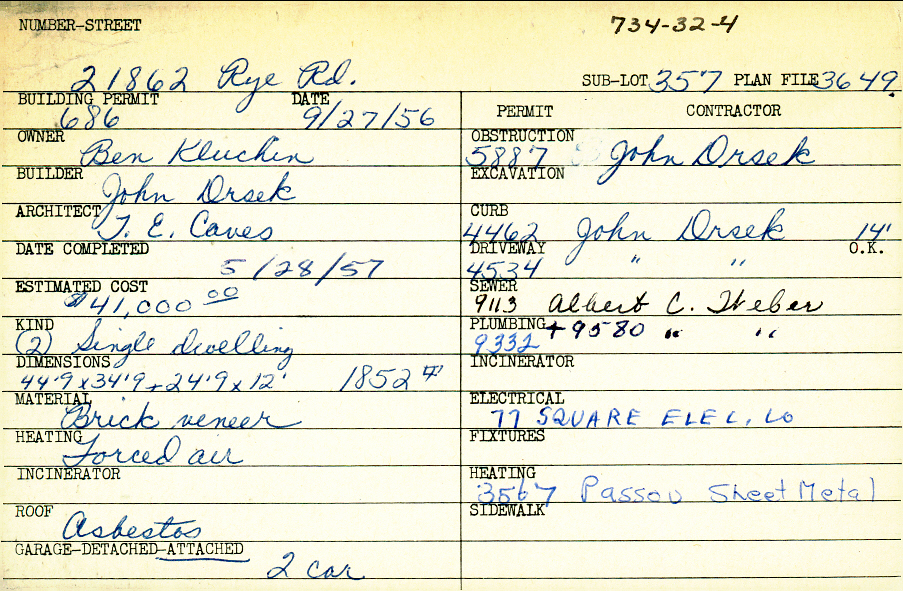 NUMBER-STREET 734-32-4
21862 Rye Rd. SUB-LOT 357 PLAN FILE 3649.
BUILDING PERMIT DATE PERMIT CONTRACTOR
686 9/27/56
OWNER OBSTRUCTION
Ben Kluchin 5887 John Drsek
BUILDER EXCAVATION
John Drsek
ARCHITECT CURB
T. E. Caves 4462 John Drsek 14'
DATE COMPLETED DRIVEWAY O.K.
5/28/57 4534 " "
ESTIMATED COST SEWER
$41,000 00 9113 Albert C. Weber
KIND PLUMBING + 9580 " "
(2) Single dwelling 9332
DIMENSIONS INCINERATOR
44'9 x 34'9 + 24'9 x 12' 1852 #'
MATERIAL ELECTRICAL
Brick veneer 77 SQUARE ELEC. CO
HEATING FIXTURES
Forced air
INCINERATOR HEATING
3567 Passov Sheet Metal
ROOF SIDEWALK
Asbestos
GARAGE-DETACHED-ATTACHED
2 car